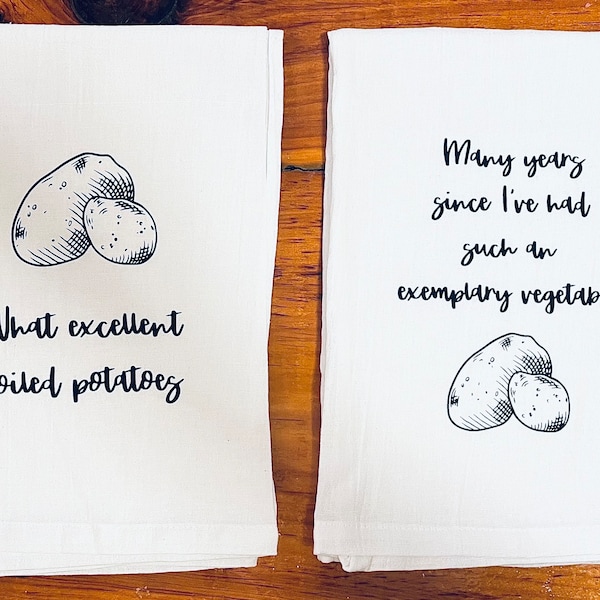 What excellent
oiled potatoes
Many years
since I've had
such an
exemplary vegetab